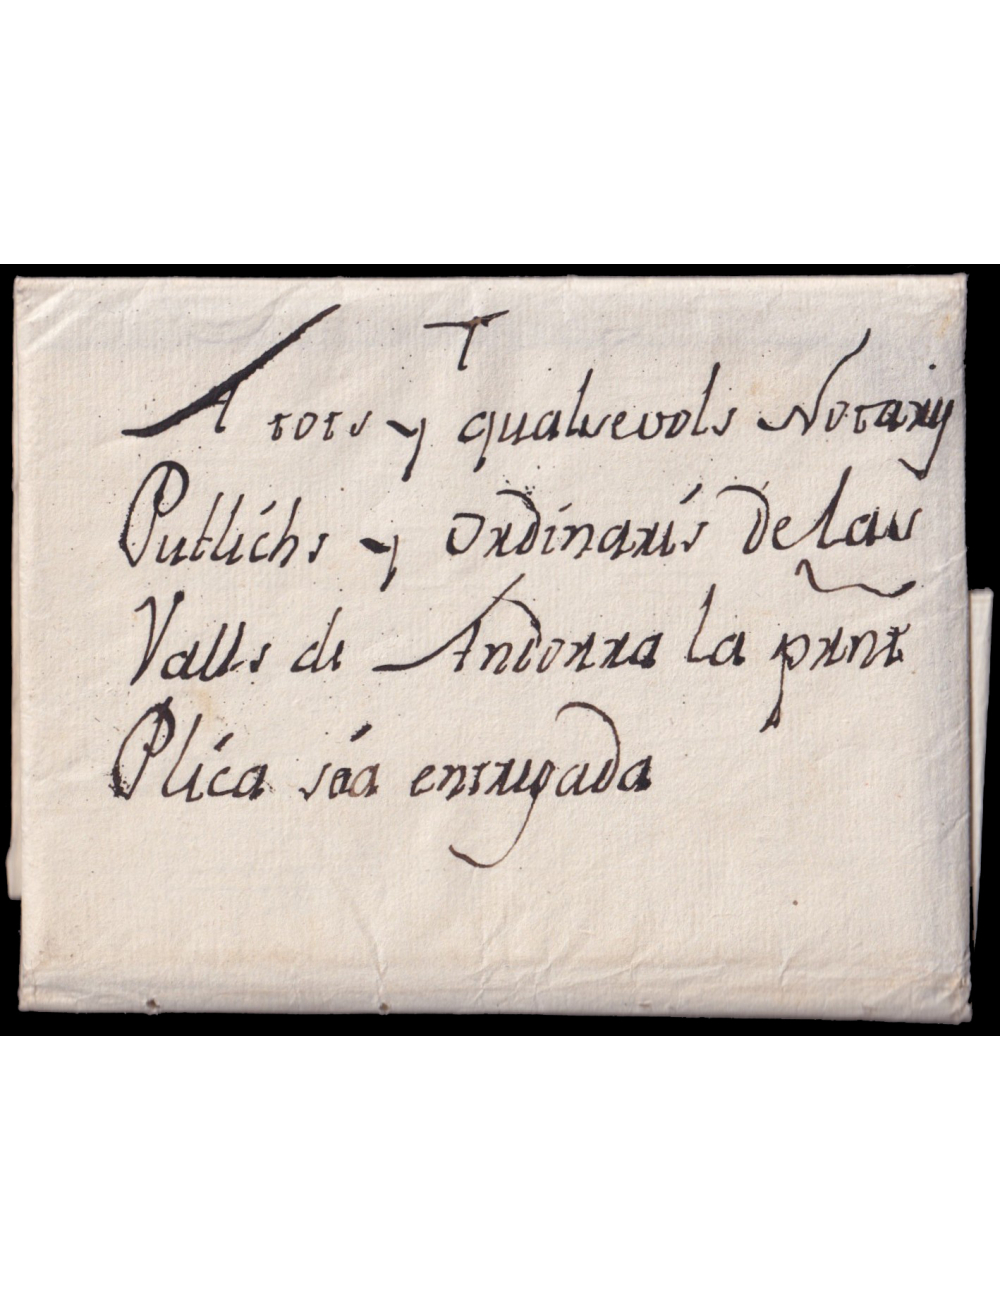 A tots y qualsevols Notarij
Publichs y Ordinaris de las
Valls de Andorra la prnt
Plica sia entregada